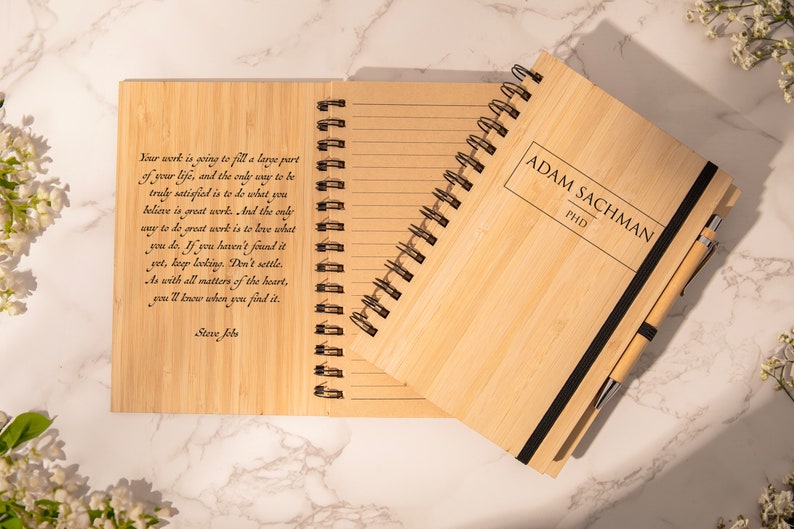 Your work is going to fill a large part
of your life, and the only way to be
truly satisfied is to do what you
believe is great work. And the only
way to do great work is to love what
you do. If you haven't found it
yet, keep looking. Don't settle.
As with all matters of the heart,
you'll know when you find it.
Steve Jobs
ADAM SACHMAN
PHD